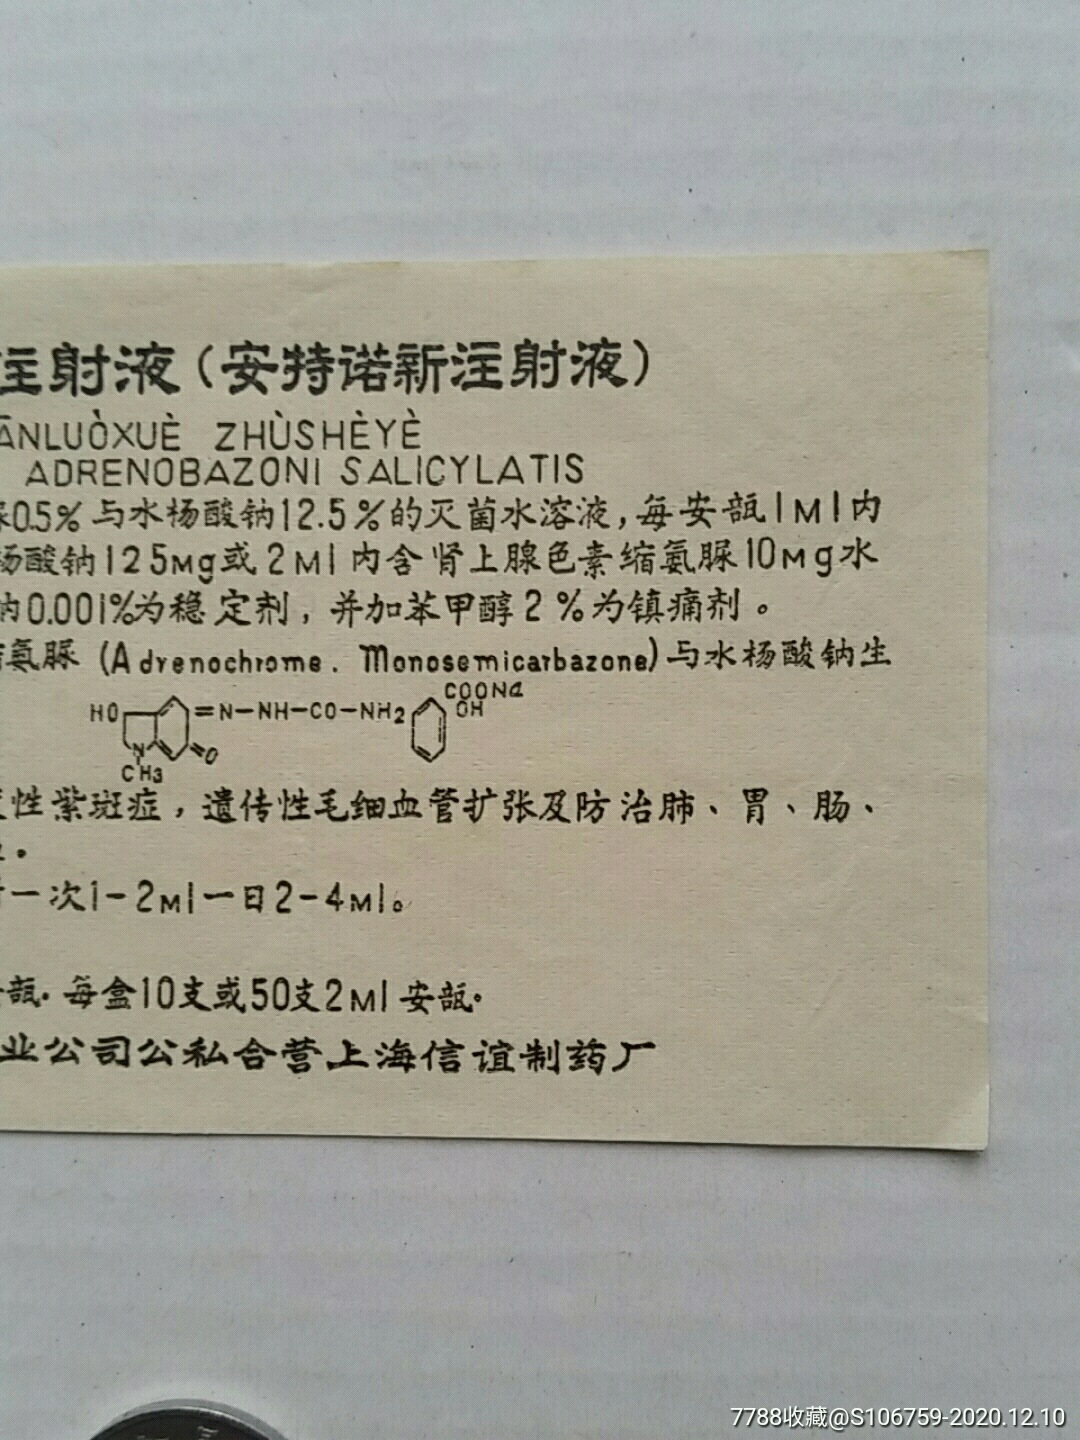 注射液（安特诺新注射液）
ĀNLUÒXUÈ ZHÙSHÈYÈ
ADRENOBAZONI SALICYLATIS
尿0.5%与水杨酸钠12.5%的灭菌水溶液，每安瓿1Ml内
杨酸钠125Mg或2Ml内含肾上腺色素缩氨脲10Mg水
钠0.001%为稳定剂，并加苯甲醇2%为镇痛剂。
氨脲（Adrenochrome. Monosemicarbazone）与水杨酸钠生
HO =N-NH-CO-NH2 COONa OH
N =O
CH3
性紫斑症，遗传性毛细血管扩张及防治肺、胃、肠、
一次1-2Ml一日2-4Ml。
瓿. 每盒10支或50支2Ml安瓿.
业公司公私合营上海信谊制药厂
7788收藏@S106759-2020.12.10